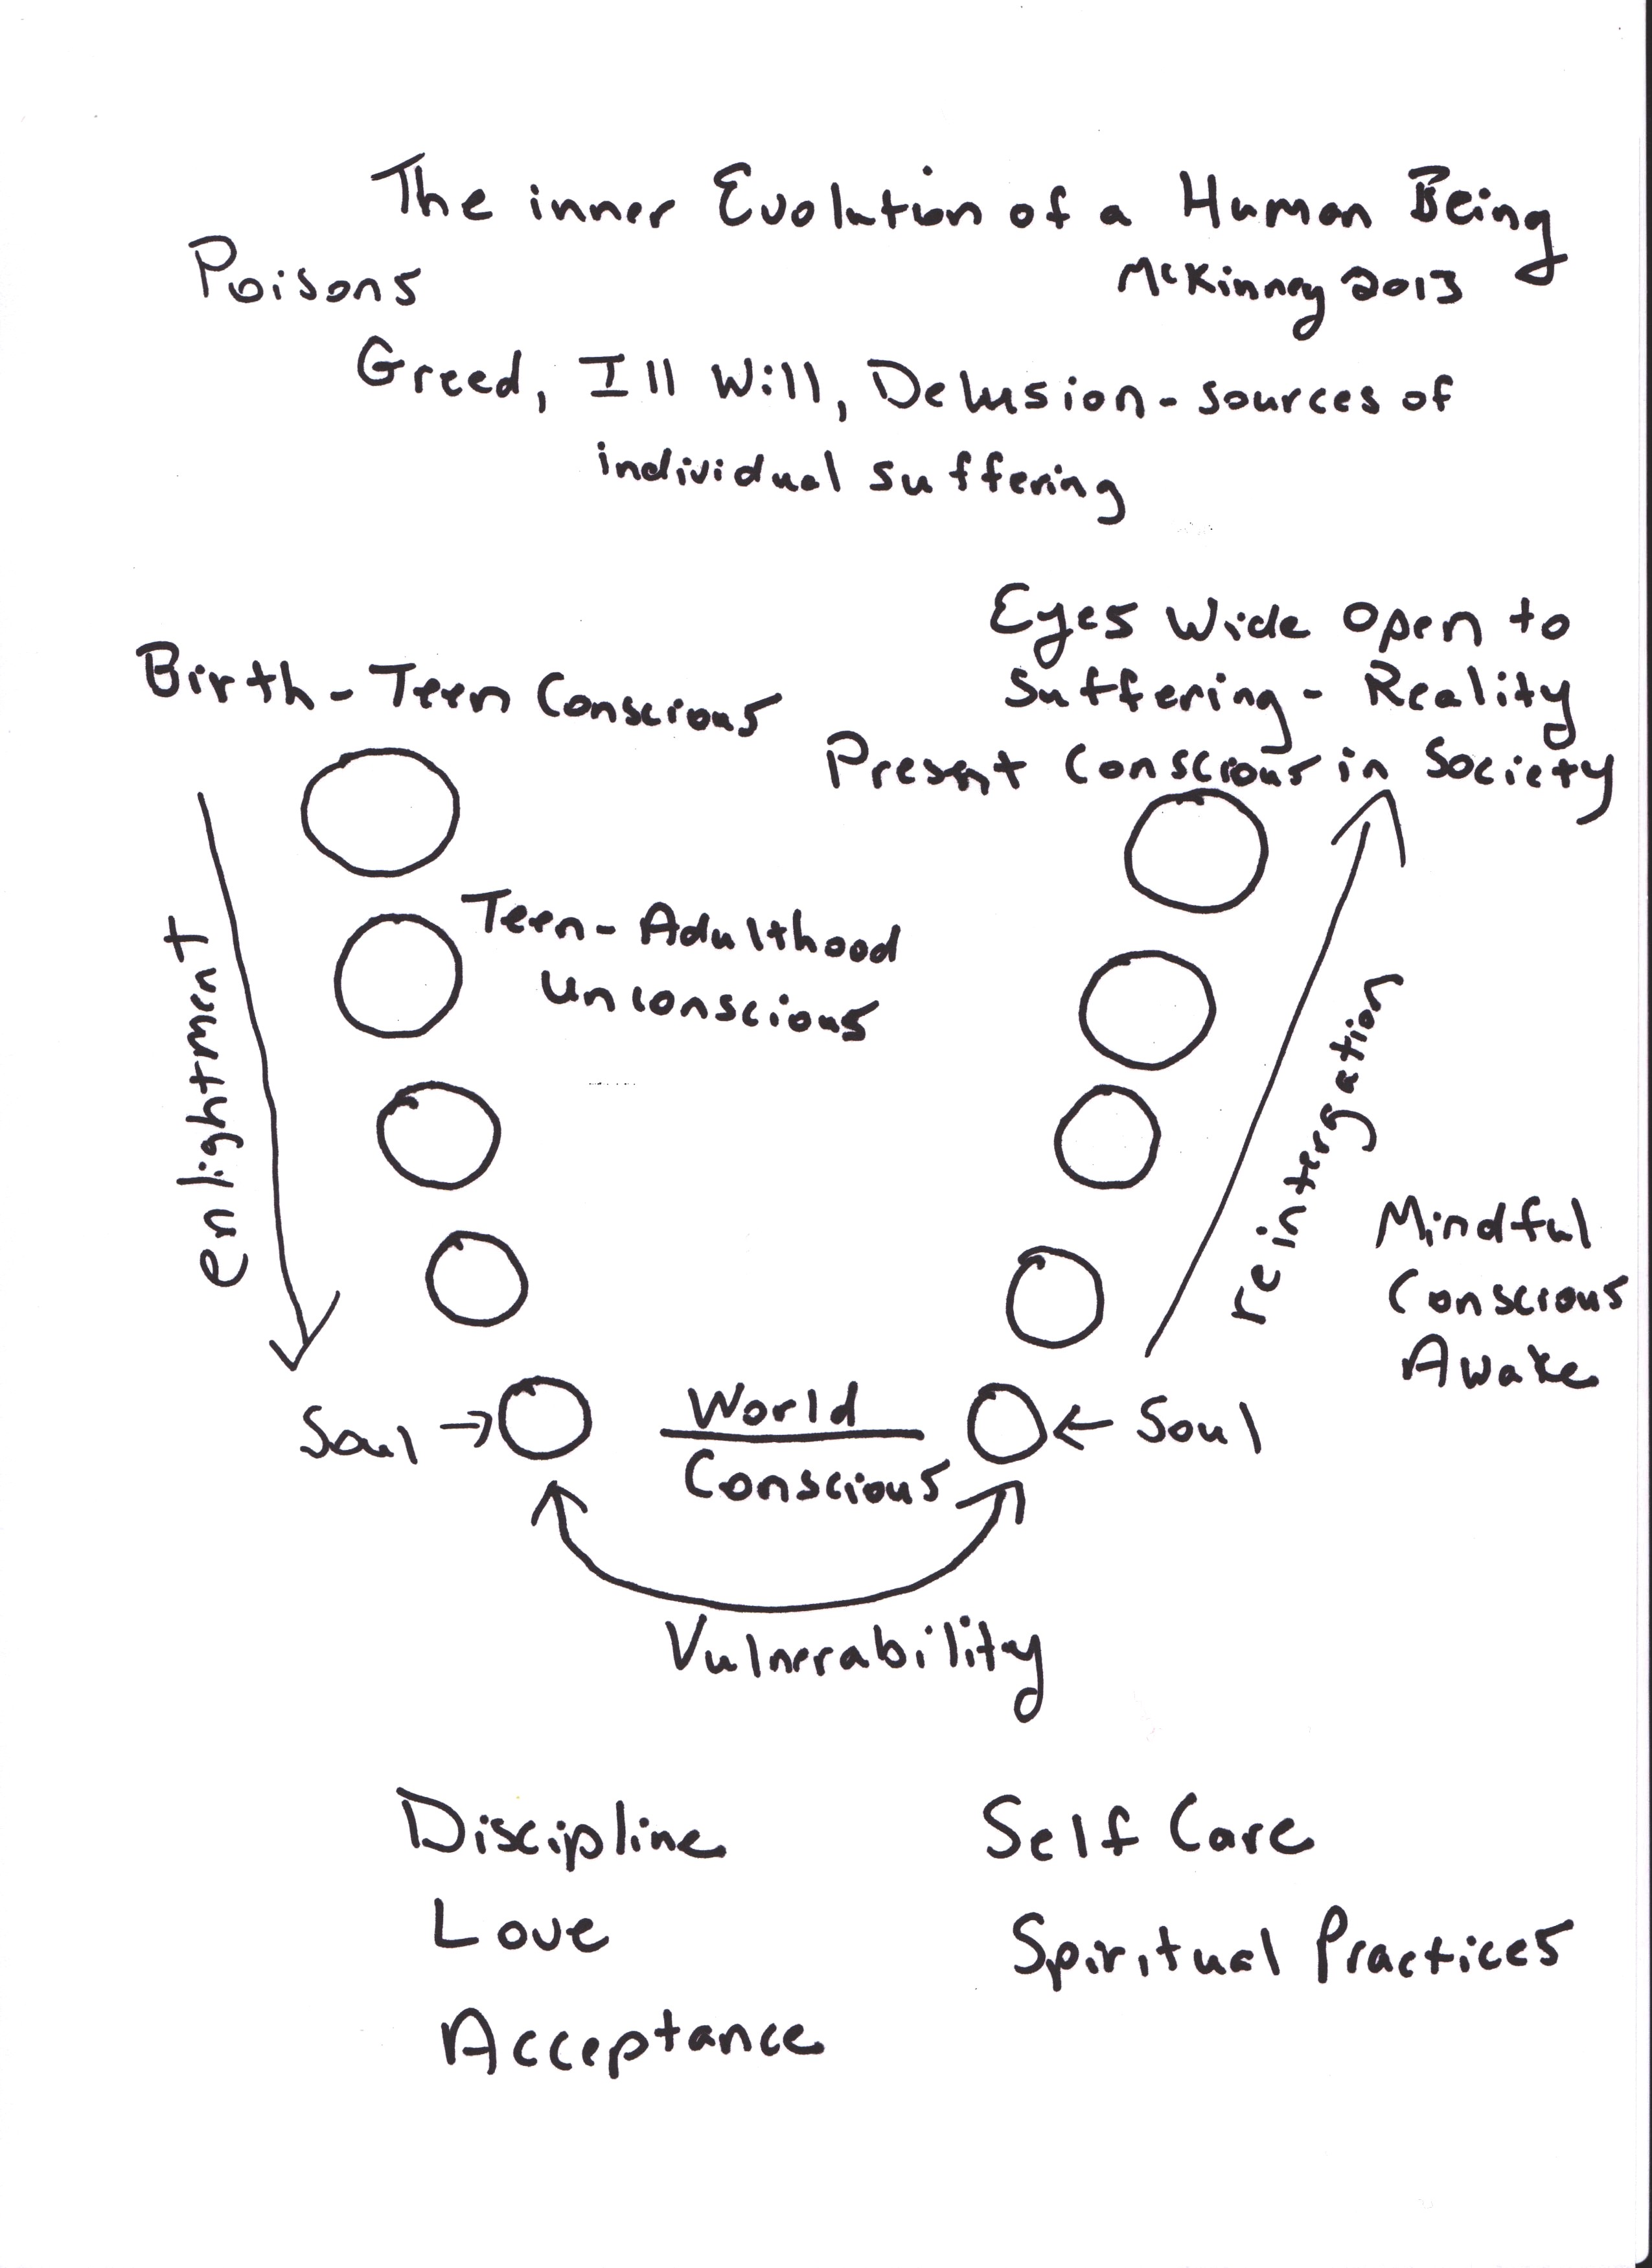 The inner Evolution of a Human Being
Poisons
McKinney 2013
Greed, Ill Will, Delusion - sources of
individual suffering
Eyes Wide Open to
Suffering - Reality
Present Conscious in Society
Birth - Teen Conscious
Teen - Adulthood
Unconscious
enlightment
reintergation
Mindful
Conscious
Awake
Soul → World ← Soul
Conscious
Vulnerability
Discipline
Self Care
Love
Spiritual Practices
Acceptance